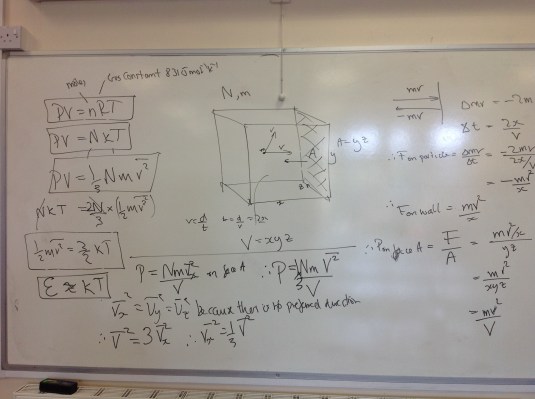 moles Gas Constant 8.31 J mol⁻¹K⁻¹
PV = nRT
PV = NKT
PV = 1/3 Nm v̅²
NKT = 2N/3 × (½mv̅²)
½mv̅² = 3/2 KT
E ≈ KT
N, m
v
A
A = yz
y
z
x
v = d/t t = d/v = 2x
V = xyz
P = Nm v̅ₓ²/V on face A ∴ P = ⅓Nm v̅²/V
v̅ₓ² = v̅ᵧ² = v̅_z² because there is no preferred direction
∴ v̅² = 3v̅ₓ² ∴ v̅ₓ² = 1/3 v̅²
mv
-mv
Δmv = -2m
Δt = 2x/v
∴ F on particle = Δmv/Δt = -2mv/2x/v
= -mv²/x
∴ F on wall = mv²/x
∴ P on face A = F/A = mv²/x/yz
= mv²/xyz
= mv²/V